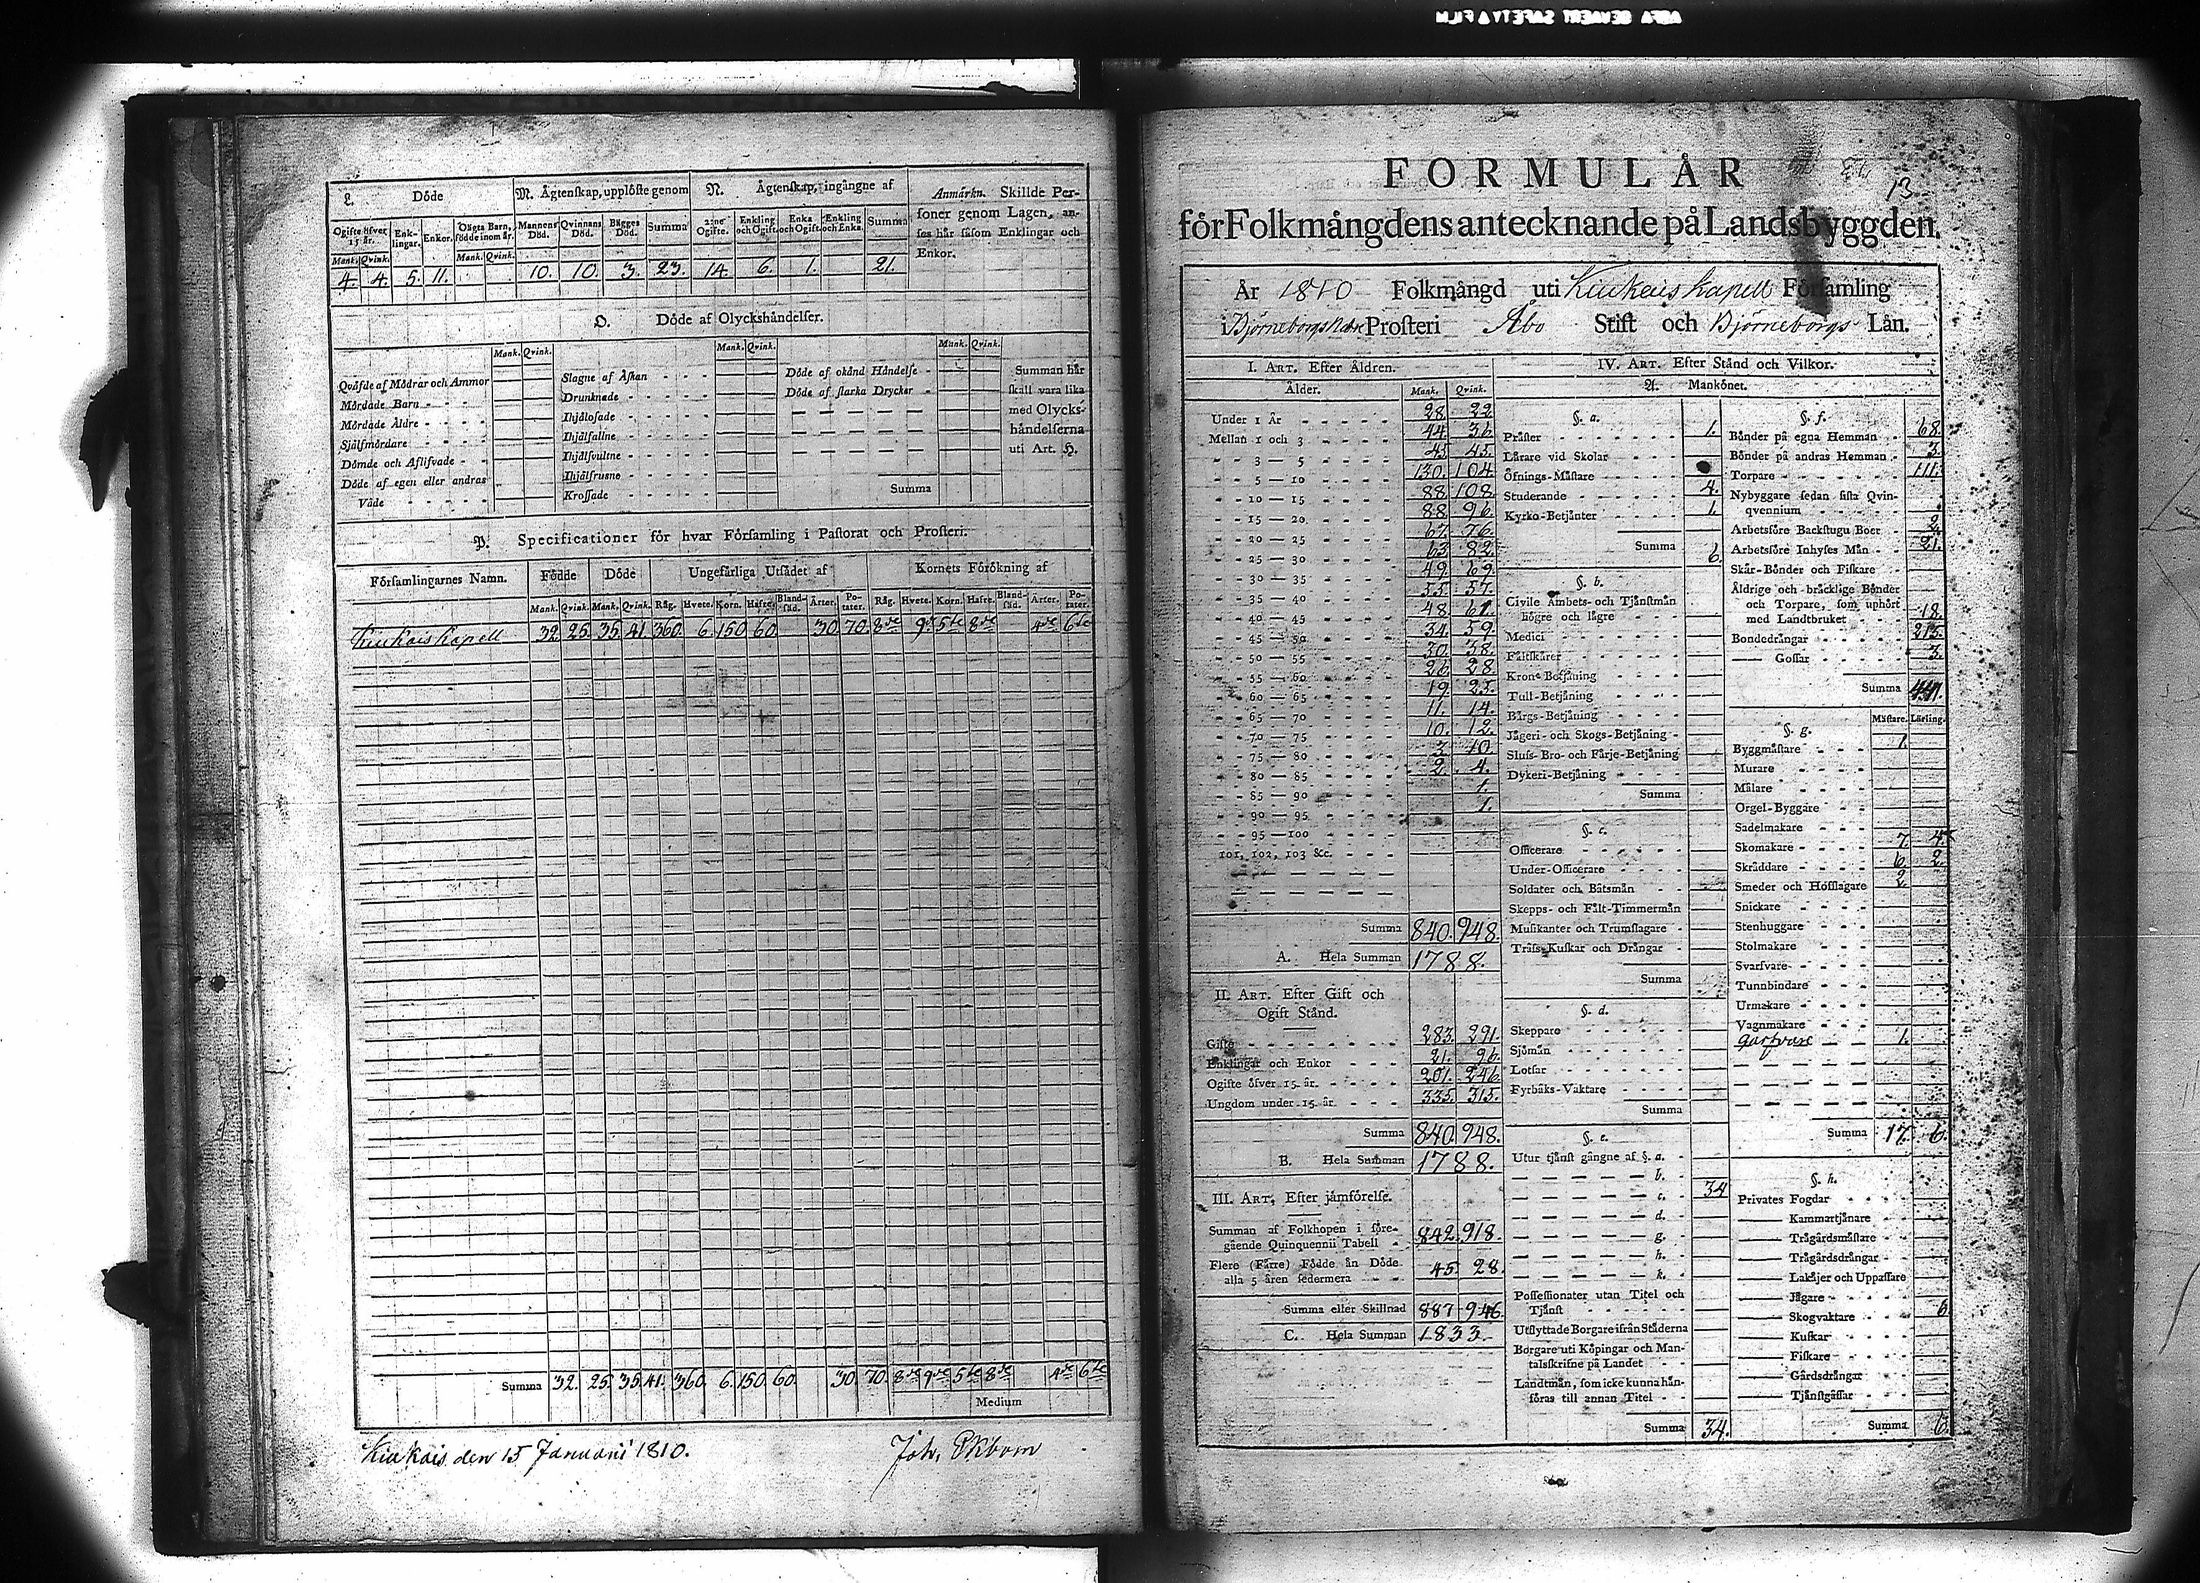 L. Döde
M. Ägtenskap, upplöste genom
N. Ägtenskap, ingångne af
Anmärkn. Skillde Per-
soner genom Lagen, an-
ses här såsom Enklingar och
Enkor.
Ogifte öfver 15 år. Enk-lingar. Enkor. Oägta Barn, födde inom år. Mannens Död. Qvinnans Död. Bägges Död. Summa 2:ne Ogifte. Enkling och Ogift. Enka och Ogift. Enkling och Enka. Summa
Mank. Qvink. Mank. Qvink.
4. 4. 5. 11. 10. 10. 3. 23. 14. 6. 1. 21.
O. Döde af Olyckshändelser.
Mank. Qvink. Mank. Qvink. Mank. Qvink.
Qväfde af Mödrar och Ammor
Mördade Barn
Mördade Äldre
Själfmördare
Dömde och Aflifvade
Döde af egen eller andras
Våde
Slagne af Åskan
Drunknade
Ihjälosade
Ihjälfallne
Ihjälsvultne
Ihjälfrusne
Krossade
Döde af okänd Händelse
Döde af starka Drycker
Summa
Summan här
skall vara lika
med Olycks-
händelserna
uti Art. H.
P. Specificationer för hvar Församling i Pastorat och Prosteri.
Församlingarnes Namn. Födde Döde Ungefärliga Utsädet af Kornets Förökning af
Mank. Qvink. Mank. Qvink. Råg. Hvete. Korn. Hafre. Bland-säd. Ärter. Po-tater. Råg. Hvete. Korn. Hafre. Bland-säd. Ärter. Po-tater.
Kiukais Kapell 32. 25. 35. 41. 360. 6. 150. 60. 30. 70. 8de 9de 5te 8de 4de 6te
Summa 32. 25. 35. 41. 360. 6. 150. 60. 30. 70. 8de 9de 5te 8de 4de 6te
Medium
Kiukais den 15 Januarii 1810.
Joh. Ekbom
13
FORMULÄR
för Folkmängdens antecknande på Landsbyggden.
År 1810 Folkmängd uti Kiukais Kapell Församling
i Björneborgs Prosteri Åbo Stift och Björneborgs Län.
I. ART. Efter Åldren.
Ålder. Mank. Qvink.
Under 1 År 28. 22.
Mellan 1 och 3 44. 36.
3 — 5 45. 45.
5 — 10 130. 104.
10 — 15 88. 108.
15 — 20 88. 96.
20 — 25 67. 76.
25 — 30 63. 82.
30 — 35 49. 69.
35 — 40 55. 57.
40 — 45 48. 61.
45 — 50 34. 59.
50 — 55 30. 38.
55 — 60 26. 28.
60 — 65 19. 23.
65 — 70 11. 14.
70 — 75 10. 12.
75 — 80 3. 10.
80 — 85 2. 4.
85 — 90 1.
90 — 95 1.
95 — 100
101, 102, 103 &c.
Summa 840. 948.
A. Hela Summan 1788.
II. ART. Efter Gift och
Ogift Stånd.
Gifte 283. 291.
Enklingar och Enkor 21. 96.
Ogifte öfver 15 år. 201. 246.
Ungdom under 15 år 335. 315.
Summa 840. 948.
B. Hela Summan 1788.
III. ART. Efter jämförelse.
Summan af Folkhopen i före-
gående Quinquennii Tabell 842. 918.
Flere (Färre) Födde än Döde
alla 5 åren sedermera 45. 28.
Summa eller Skillnad 887 946.
C. Hela Summan 1833.
IV. ART. Efter Stånd och Vilkor.
A. Mankönet.
§. a.
Präster 1.
Lärare vid Skolar
Öfnings-Mästare
Studerande 4.
Kyrko-Betjänter 1.
Summa 6.
§. b.
Civile Ämbets- och Tjänstmän
högre och lägre
Medici
Fältskärer
Krono Betjäning
Tull-Betjäning
Bärgs-Betjäning
Jägeri- och Skogs-Betjäning
Sluss- Bro- och Färje-Betjäning
Dykeri-Betjäning
Summa
§. c.
Officerare
Under-Officerare
Soldater och Båtsmän
Skepps- och Fält-Timmermän
Musikanter och Trumslagare
Träss-Kuskar och Drängar
Summa
§. d.
Skeppare
Sjömän
Lotsar
Fyrbåks-Vaktare
Summa
§. e.
Utur tjänst gångne af §. a.
b.
c. 34
d.
g.
h.
k.
Possessionater utan Titel och
Tjänst
Utflyttade Borgare ifrån Städerna
Borgare uti Köpingar och Man-
talsskrifne på Landet
Landtmän, som icke kunna hän-
föras till annan Titel
Summa 34.
§. f.
Bönder på egna Hemman 68.
Bönder på andras Hemman 3.
Torpare 111.
Nybyggare sedan sista Qvin-
qvennium
Arbetsföre Backstugu Boer 2.
Arbetsföre Inhyses Män 21.
Skär-Bönder och Fiskare
Äldrige och bräcklige Bönder
och Torpare, som uphört
med Landtbruket 18.
Bondedrängar 215.
Gossar 3.
Summa 441.
Mästare. Lärling.
§. g.
Byggmästare 1.
Murare
Målare
Orgel-Byggare
Sadelmakare
Skomakare 7. 4.
Skräddare 6. 2.
Smeder och Hofslagare 2.
Snickare
Stenhuggare
Stolmakare
Svarfvare
Tunnbindare
Urmakare
Vagnmakare
Garfvare 1.
Summa 17. 6.
§. h.
Privates Fogdar
Kammartjänare
Trägårdsmästare
Trägårdsdrängar
Lakäjer och Uppassare
Jägare
Skogvaktare 6
Kuskar
Fiskare
Gårdsdrängar
Tjänstgässar
Summa 6.